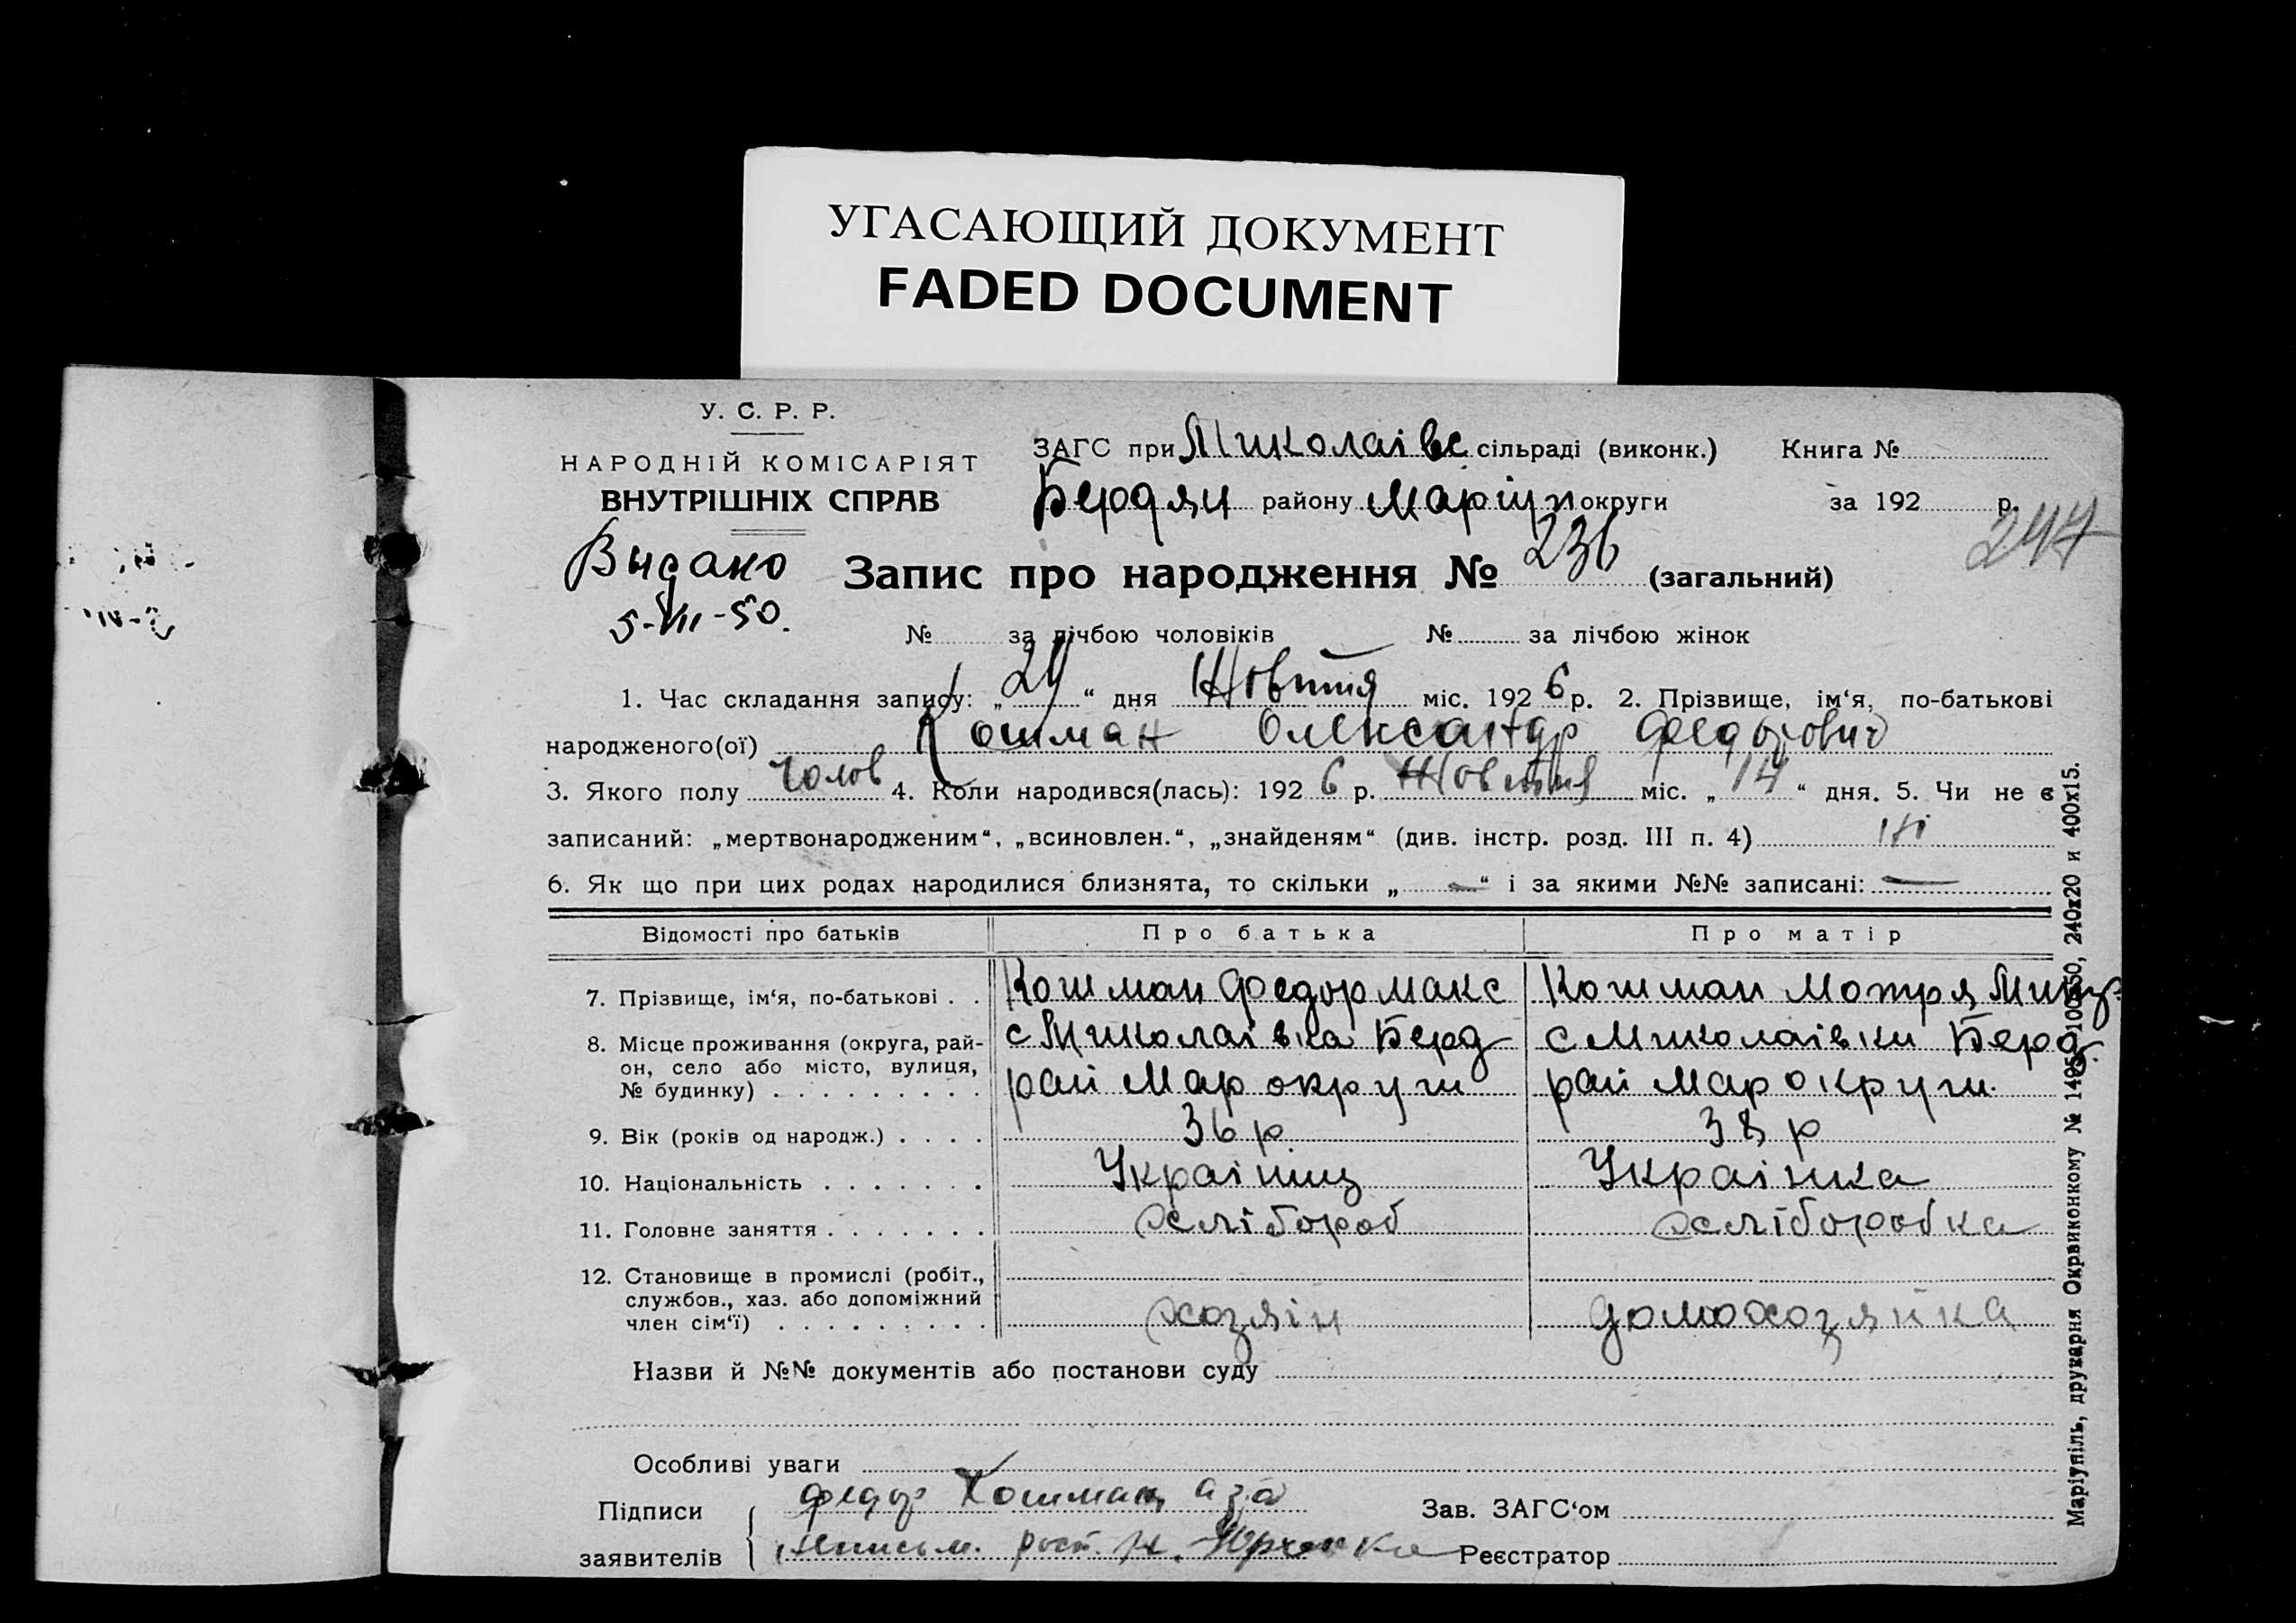 УГАСАЮЩИЙ ДОКУМЕНТ
FADED DOCUMENT
У. С. Р. Р.
НАРОДНІЙ КОМІСАРІЯТ
ВНУТРІШНІХ СПРАВ
ЗАГС при Миколаівс сільраді (виконк.) Книга №
Бердян району Маріуп округи за 192 р.
247
Выдано
5-VII-50.
Запис про народження № 236 (загальний)
№ за лічбою чоловіків № за лічбою жінок
1. Час складання запису: „24“ дня Жовтня міс. 1926 р. 2. Прізвище, ім‘я, по-батькові
народженого(ої) Кошман Олександр Федорович
3. Якого полу Чолов 4. Коли народився(лась): 1926 р. Жовтня міс. „14“ дня. 5. Чи не є
записаний: „мертвонародженим“, „всиновлен.“, „знайденям“ (див. інстр. розд. III п. 4) Ні
6. Як що при цих родах народилися близнята, то скільки „—“ і за якими №№ записані: —
Відомості про батьків Про батька Про матір
7. Прізвище, ім‘я, по-батькові . . Кошман Федор Макс Кошман Мотря
8. Місце проживання (округа, рай- с Миколаівка Берд с Миколаівки Берд.
он, село або місто, вулиця,
№ будинку) . . . . . . . . . рай Мар округи рай Мар округи.
9. Вік (років од народж.) . . . . 36 р 38 р
10. Національність . . . . . . . Украінець Украінка
11. Головне заняття . . . . . . . Хлібороб Хліборобка
12. Становище в промислі (робіт.,
службов., хаз. або допоміжний
член сім‘ї) . . . . . . . . . Хозяін домохозяйка
Назви й №№ документів або постанови суду
Особливі уваги
Підписи Федор Кошман, а за
заявителів неписьм. рост. Н. Зав. ЗАГС‘ом
Реєстратор
Маріупіль, друкарня Окрвиконкому № 1495-100350, 240х20 и 400х15.